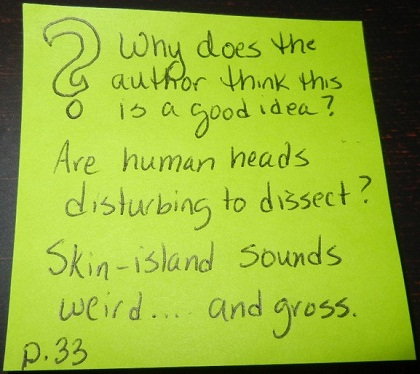 ? Why does the
author think this
is a good idea?
Are human heads
disturbing to dissect?
Skin-island sounds
weird.... and gross.
p.33